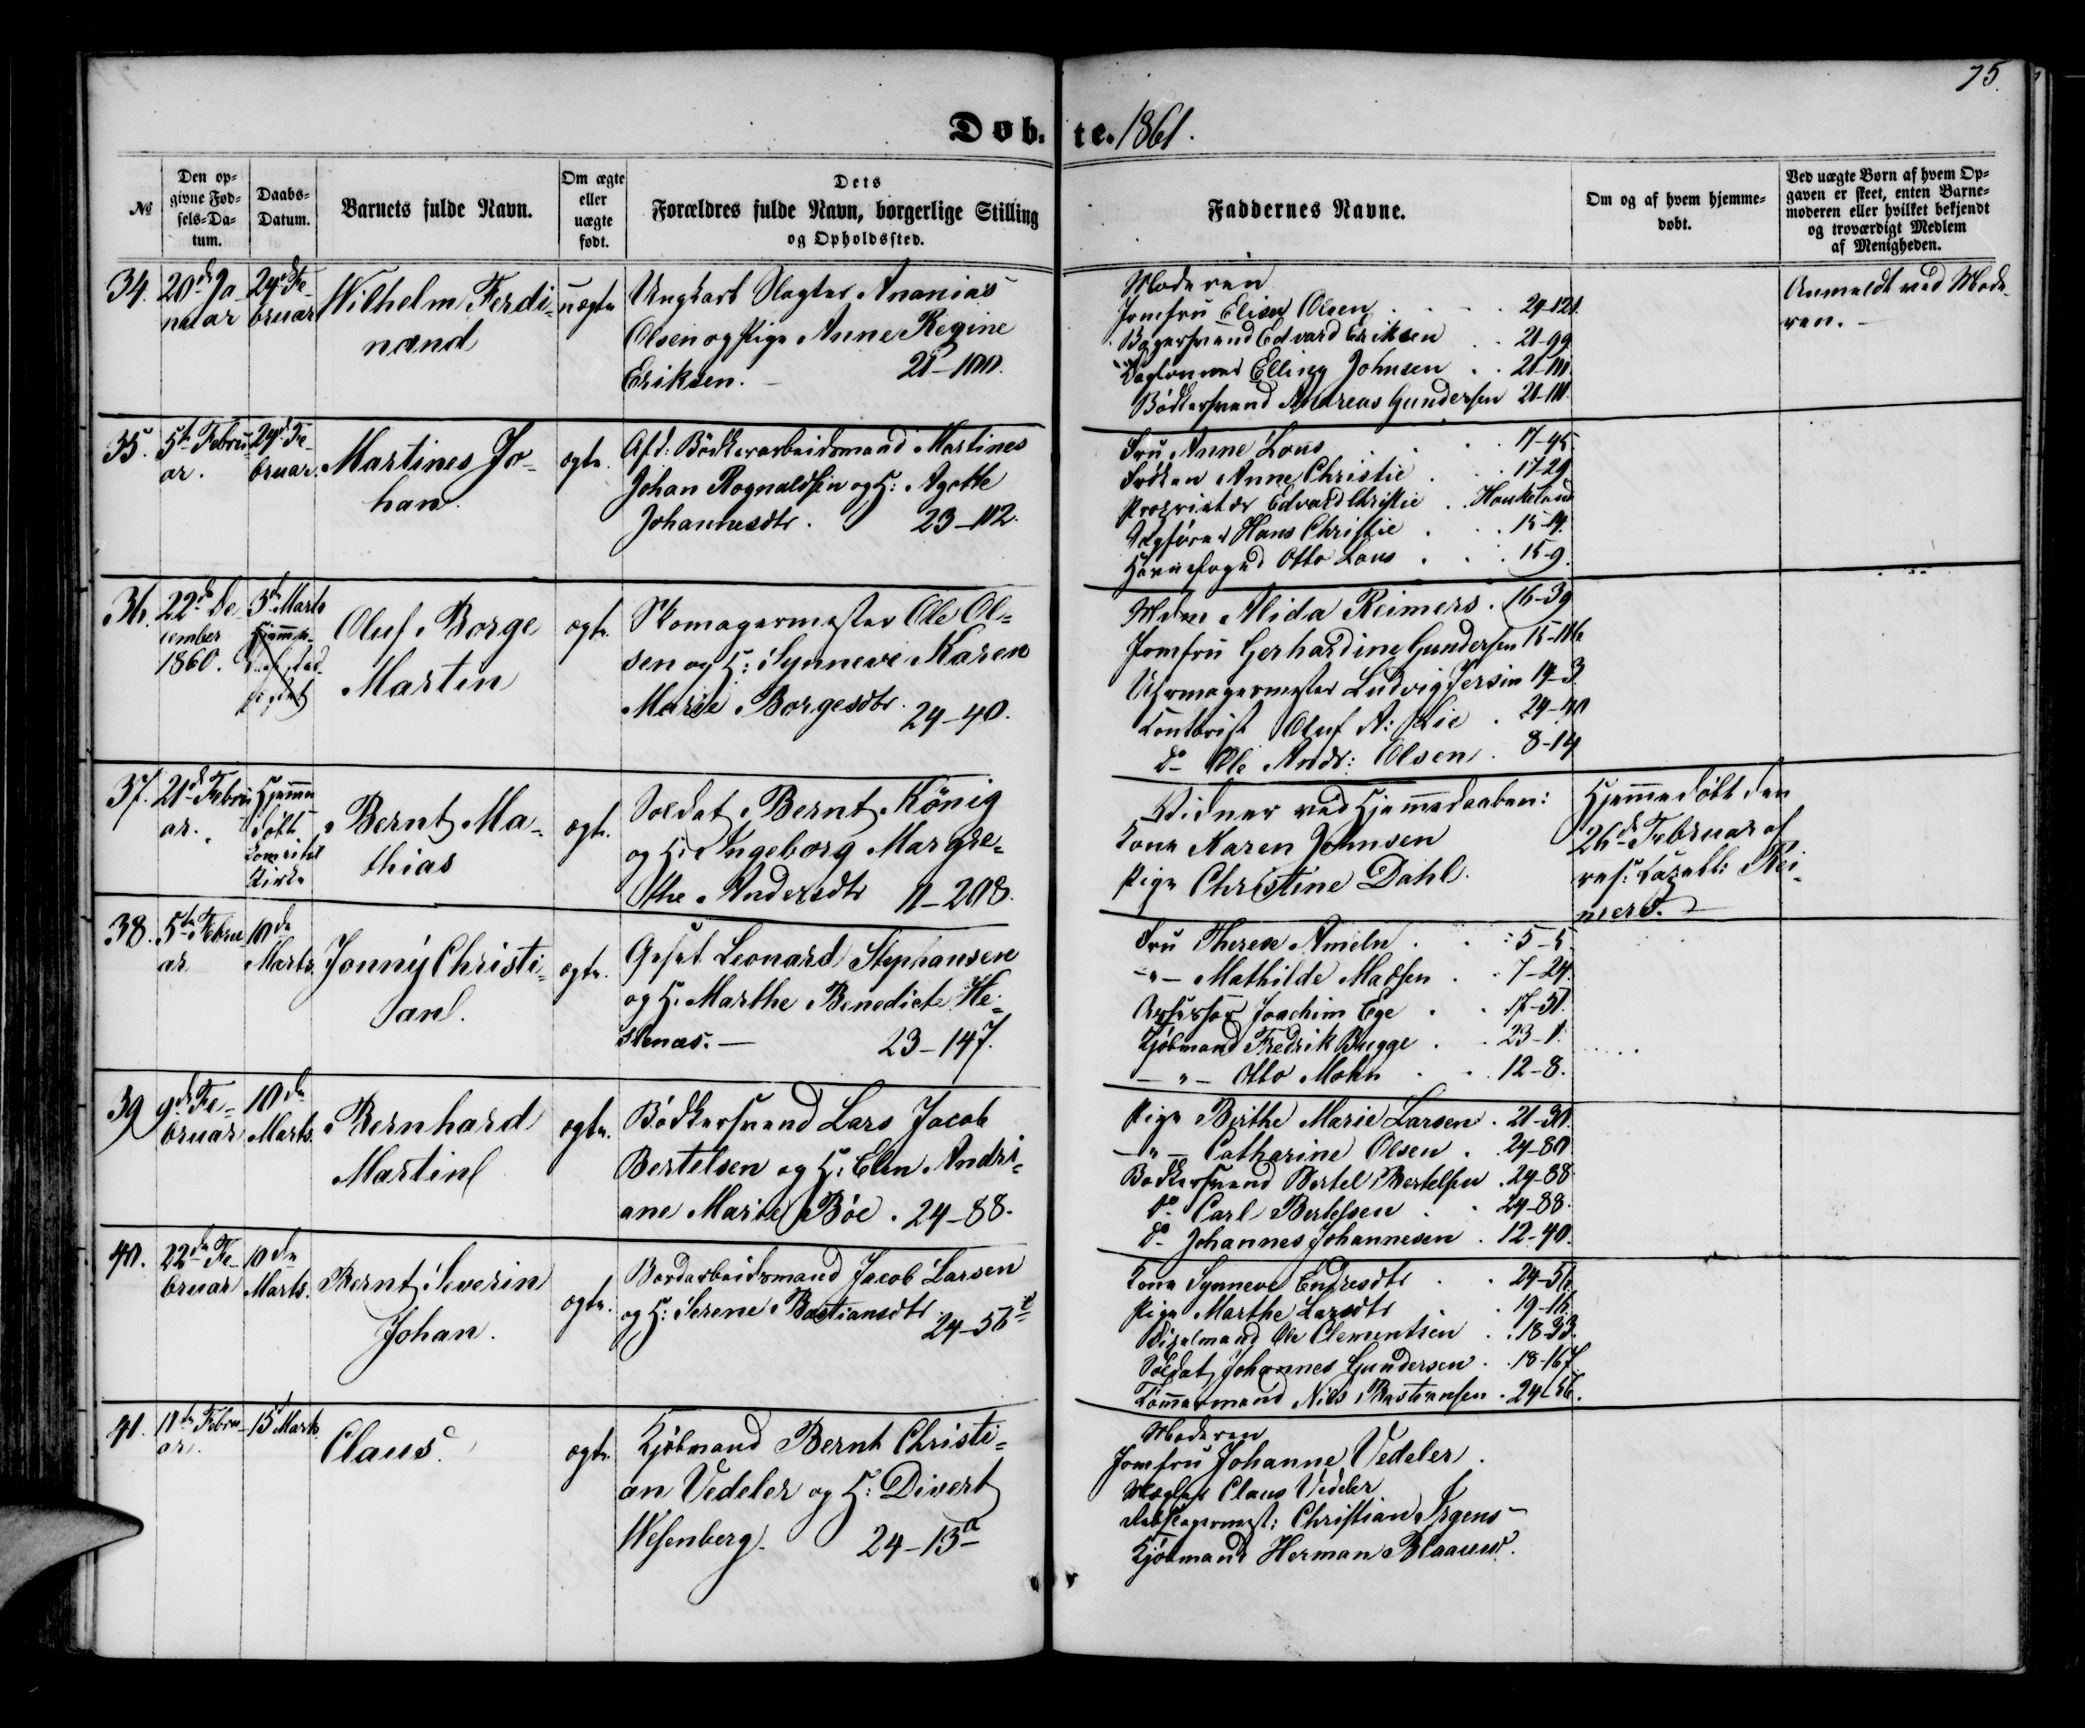 75.
Døb-te. 1861.
№
Den op-
givne Fød-
sels-Da-
tum.
Daabs-
Datum.
Barnets fulde Navn.
Om ægte
eller
uægte
født.
Dets
Forældres fulde Navn, borgerlige Stilling
og Opholdssted.
Faddernes Navne.
Om og af hvem hjemme-
døbt.
Ved uægte Børn af hvem Op-
gaven er skeet, enten Barne-
moderen eller hvilket bekjendt
og troværdigt Medlem
af Menigheden.
34.
20de Ja-
nuar
24de Fe-
bruar
Wilhelm Ferdi-
nand
uægte
Ungkarl Slagter Ananias
Olsen og Pige Anne Regine
Eriksen. 21-100.
Moderen
Jomfru Elisa Olsen 24-121.
Bagersvend Edvard Eriksen 21-99
Dagleonner Elling Johnsen 21-101.
Bødkersvend Andreas Gundersen 21-101.
Anmeldt ved Mode-
ren.
35.
5te Febru-
ar.
24de Fe-
bruar.
Martines Jo-
han.
ægte.
Afd: Bødkerarbeidsmand Martines
Johan Rognaldsen og H: Agathe
Johannesdtr. 23-112.
Fru Anne Lous 17-45.
Frøken Anne Christie 17-29.
Proprietær Edvard Christie Haukeland
Sagfører Hans Christie 15-19.
Havnefoged Otto Lous 15-9.
36.
22de De-
cember
1860.
3de Marts
Hjemme-
Oluf Borge
Martin
ægte.
Skomagermester Ole Ol-
sen og H: Synneve Karen
Marie Borgesdtr. 24-40.
Mdme Alida Reimers. 16-39
Jomfru Gerhardine Gundersen 15-106
Uhrmagermester Ludvig Jersin 19-3
Contorist Oluf A: Lie 24-101
do Ole Andr: Olsen 8-14
37.
21de Febru-
ar.
Hjemme
døbt
Kirke
Bernt Ma-
thias
ægte.
Soldat Bernt König
og H: Ingeborg Margre-
the Andersdtr 11-208.
Vidner ved Hjemmedaaben:
Kone Karen Johnsen
Pige Christine Dahl.
Hjemmedøbt den
26de Februar af
res: Capell: Rei-
mers.
38.
5te Febru-
ar.
10de
Marts.
Jonny Christi-
an.
ægte.
Leonard Stephansen
og H: Marthe Benedicte He-
stenæs. 23-147.
Fru Therese Ameln 5-5.
-"- Mathilde Madsen 7-24.
Assessor Joachim Ege 17-51.
Kjøbmand Fredrik Bugge 23-1.
-"- Otto Mohn 12-8.
39
9de Fe-
bruar
10de
Marts.
Bernhard
Martin
ægte.
Bødkersvend Lars Jacob
Bertelsen og H: Elen Andri-
ane Marie Bøe. 24-88.
Pige Birthe Marie Larsen. 21-30.
-"- Catharine Olsen. 24-80
Bødkersvend Bertel Bertelsen. 24-88
do Carl Bertelsen 24-88.
do Johannes Johannesen. 12-40.
40.
22de Fe-
bruar
10de
Marts.
Bernt Severin
Johan.
ægte.
Bordarbeidsmand Jacob Larsen
og H: Serene Bastiansdtr. 24-56
Kone Synneve Endresdtr 24-56.
Pige Marthe Larsdtr 19-16.
Ole Clementsen 18-33.
Soldat Johannes Gundersen. 18-167.
Tømmermand Niels Bastiansen. 24-56.
41.
11de Febru-
ar.
15de Marts.
Claus.
ægte.
Kjøbmand Bernt Christi-
an Vedeler og H: Divert
Wesenberg. 24-13a
Moderen
Jomfru Johanne Vedeler.
Mægler Claus Vedeler
Rebslagermest: Christian Irgens
Kjøbmand Herman Blaauw.